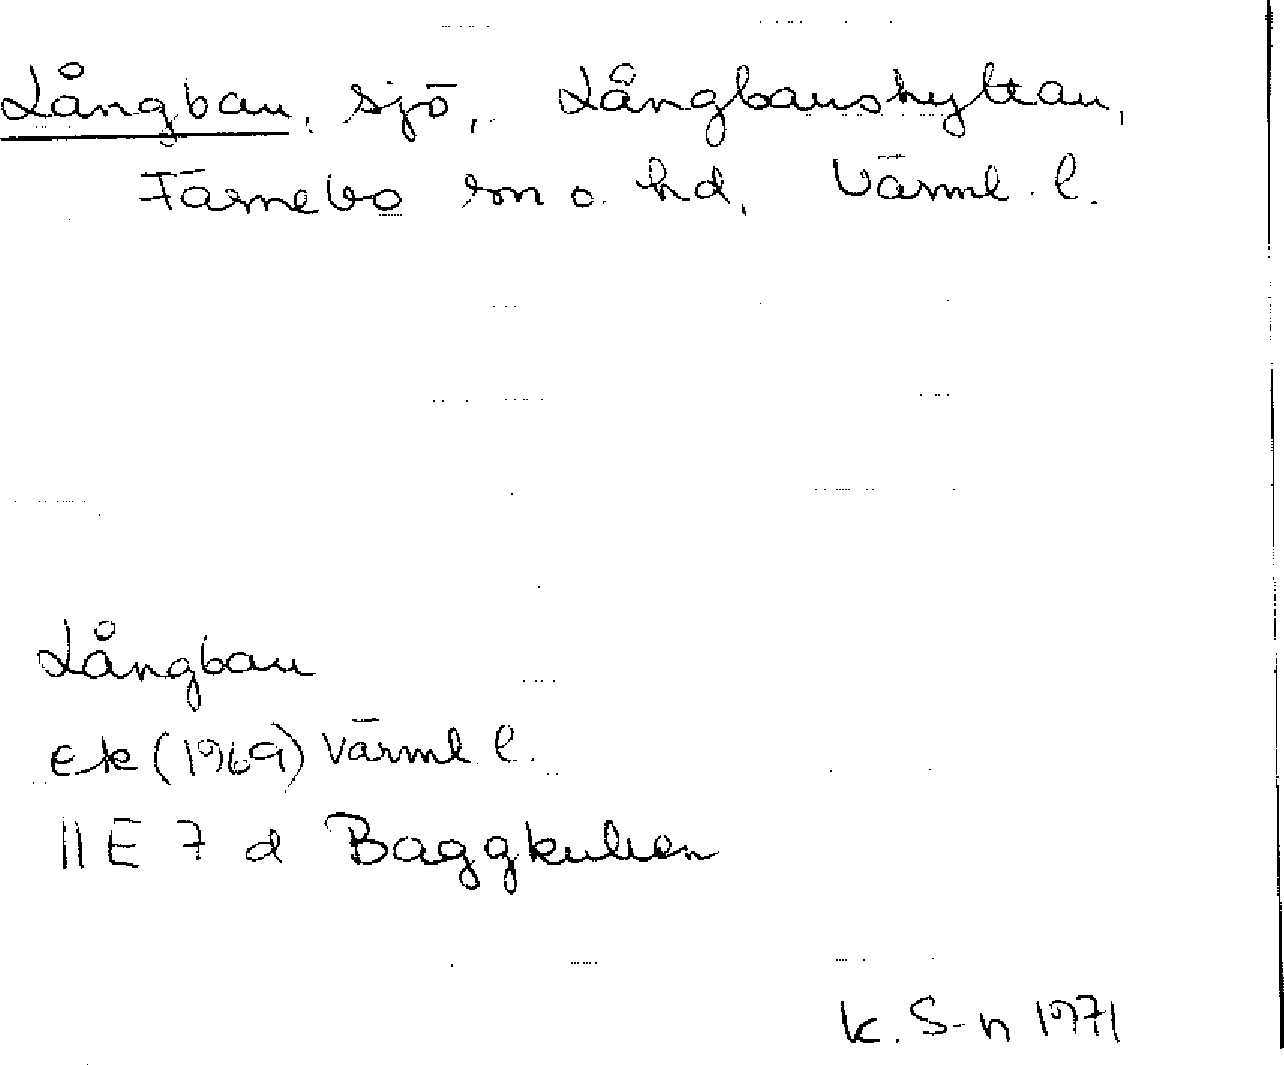 Långban, sjö, Långbanshyttan,
Färnebo sn o. hd, Värml. l.
Långban
ek (1969) Värml l.
11 E 7 d Baggkulien
K. S-n 1971